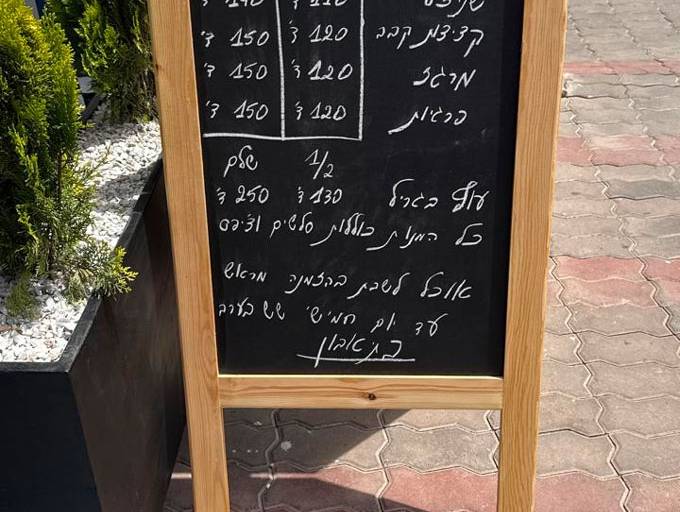 שניצל 110 ד' 140 ד'
קציצות קבב 120 ד' 150 ד'
מרגז 120 ד' 150 ד'
פרגיות 120 ד' 150 ד'
1/2 שלם
עוף בגריל 130 ד' 250 ד'
כל המנות כוללות סלטים וצ'יפס
אוכל לשבת בהזמנה מראש
עד יום חמישי שש בערב
בתיאבון